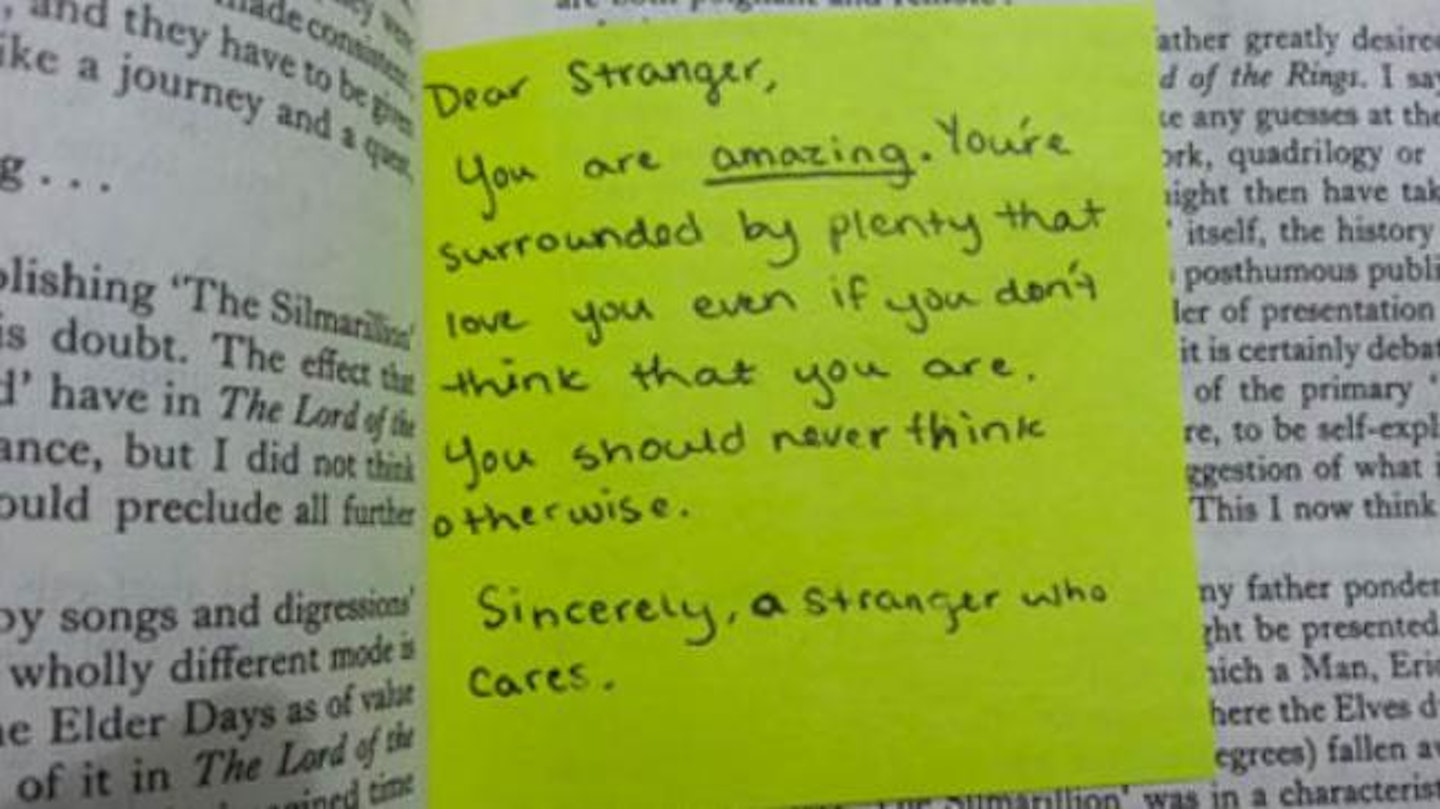 made consistent,
, and they have to be given
like a journey and a quest,
g . . .
blishing 'The Silmarillion'
is doubt. The effect that
d' have in The Lord of the
ance, but I did not think
ould preclude all further
by songs and digressions'
wholly different mode is
he Elder Days as of value
of it in The Lord of the
time
Dear Stranger,
You are amazing. You're
surrounded by plenty that
love you even if you don't
think that you are.
You should never think
otherwise.
Sincerely, a stranger who
cares.
ather greatly desire
d of the Rings. I say
ke any guesses at the
ork, quadrilogy or
ight then have tak
' itself, the history
posthumous publi
ler of presentation
it is certainly debat
of the primary '
re, to be self-expl
ggestion of what i
This I now think
ny father ponder
ght be presented
hich a Man, Eri
here the Elves d
egrees) fallen a
Silmarillion' was in a characterist